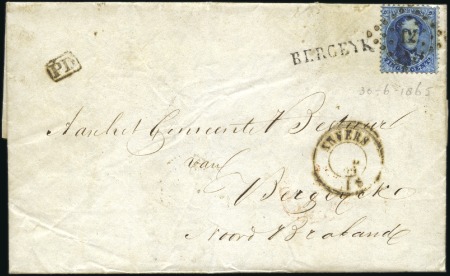 BERGEYK
PD
30-6-1865
Aan het Gemeente Bestuur
van
ANVERS
Bergeyk
Noord Braband